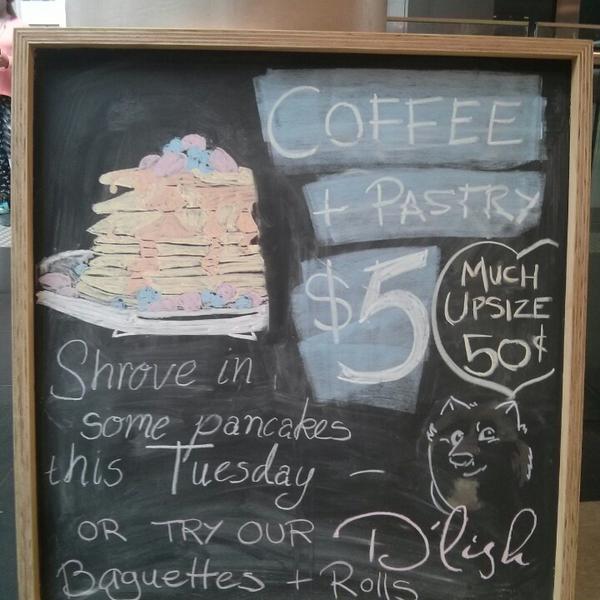 COFFEE
+ PASTRY
$5
MUCH
UPSIZE
50¢
Shrove in
some pancakes
this Tuesday –
OR TRY OUR D'lish
Baguettes + Rolls